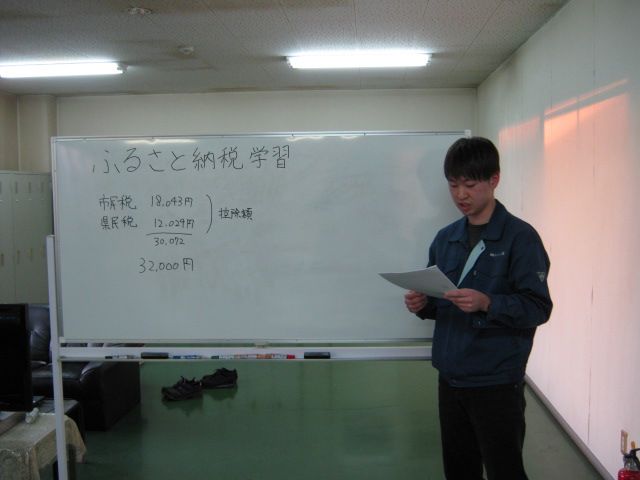 ふるさと納税学習
市民税 18,043円
県民税 12,029円
控除額
30,072
32,000円